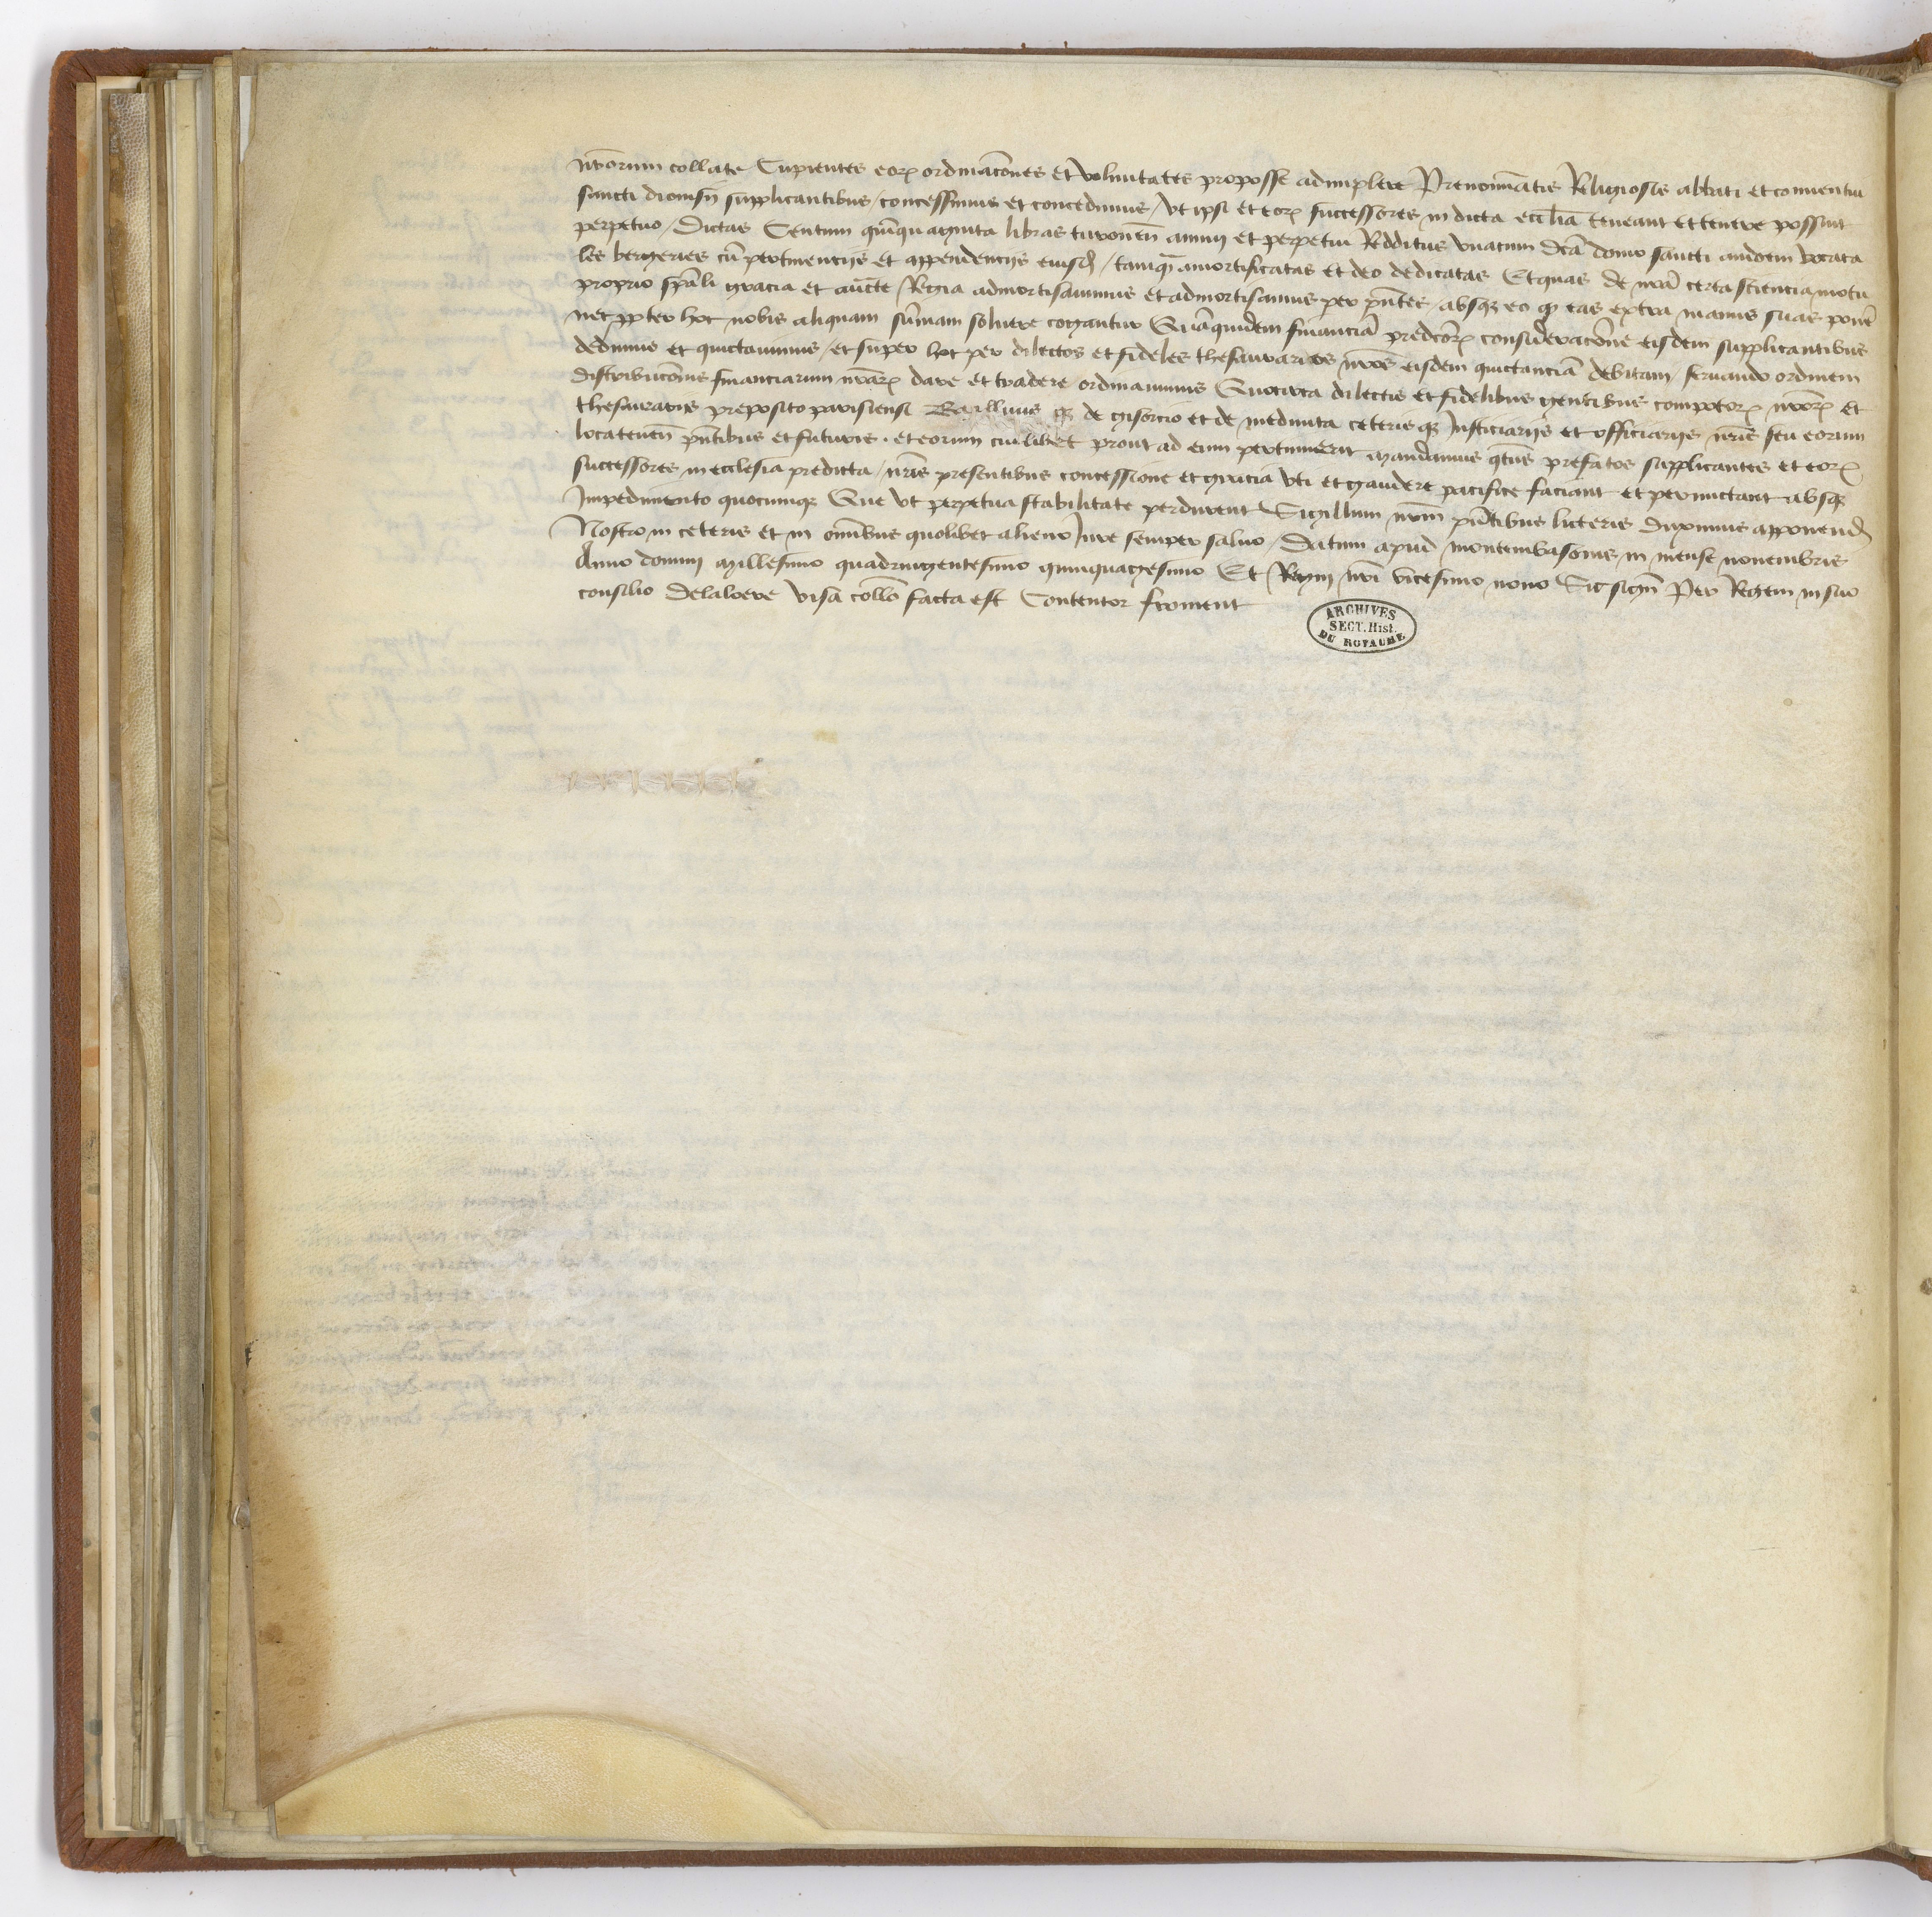 nrõrum collate Cupientes eorꝝ ordinacõnes et voluntates proposse adimplere Prenominatis Religiosis abbati et conuentui
sancti dionisij supplicantibus / concessimus et concedimus / vt ipsi et eorꝝ successores in dicta eccl̃ia teneant et tenere possint
perpetuo / Dictas Centum quĩquaginta libras turoneñ annui et perpetui Redditus vnacum dcã domo sancti audoeni vocata
les bergeries cũ pertinencijs et appendencijs eiusd̃ / tamq̃ amortisficatas et deo dedicatas Et quas de nrã certa sciencia motu
proprio sp̃ali gracia et auct̃e Regia admortisauimus et admortisamus per p̃ntes / absqꝫ eo qꝫ eas extra manus suas poner̃
nec ꝓpter hoc nobis aliquam sũmam soluere cogantur Quãquidem financiã predcõrꝝ consideracõne eisdem supplicantibus
dedimus et quictauimus / et super hoc per dilectos et fideles thesaurarios nrõs eisdem quictanciã debitam / seruando ordinem
distribucõnis financiarum nrãrꝝ dare et tradere ordinauimus Quocirca dilectis et fidelibus gentibus compotorꝝ nrõrꝝ et
thesaurarijs preposito parisiensi Bailliuis qꝫ de gisorcio et de medunta ceterisqꝫ Iusticiarijs et officiarijs nrĩs seu eorum
locateneñ p̃ntibus et futuris . et eorum cuilibet prout ad eum pertinuerit mandamus q̃tus prefatos supplicantes et eorꝝ
successores in ecclesia predicta / nrĩs presentibus concessione et gracia vti et gaudere pacifice faciant et permictant absqꝫ
Impedimento quocumqꝫ Que vt perpetua stabilitate perdurent Sigillum nrm̃ p̃ntibus licteris duximus apponend̃
Nostro in ceteris et in om̃ibus quolibet alieno Iure semper saluo / Datum apud montembasonis in mense nouembris
Anno domini millesimo quadringentesimo quinquagesimo Et Regni nrĩ vicesimo nono Sic sigñ Per Regem in suo
consilio Delaloere visa collõ facta est Contentor froment
ARCHIVES
SECT. Hist.
DU ROYAUME